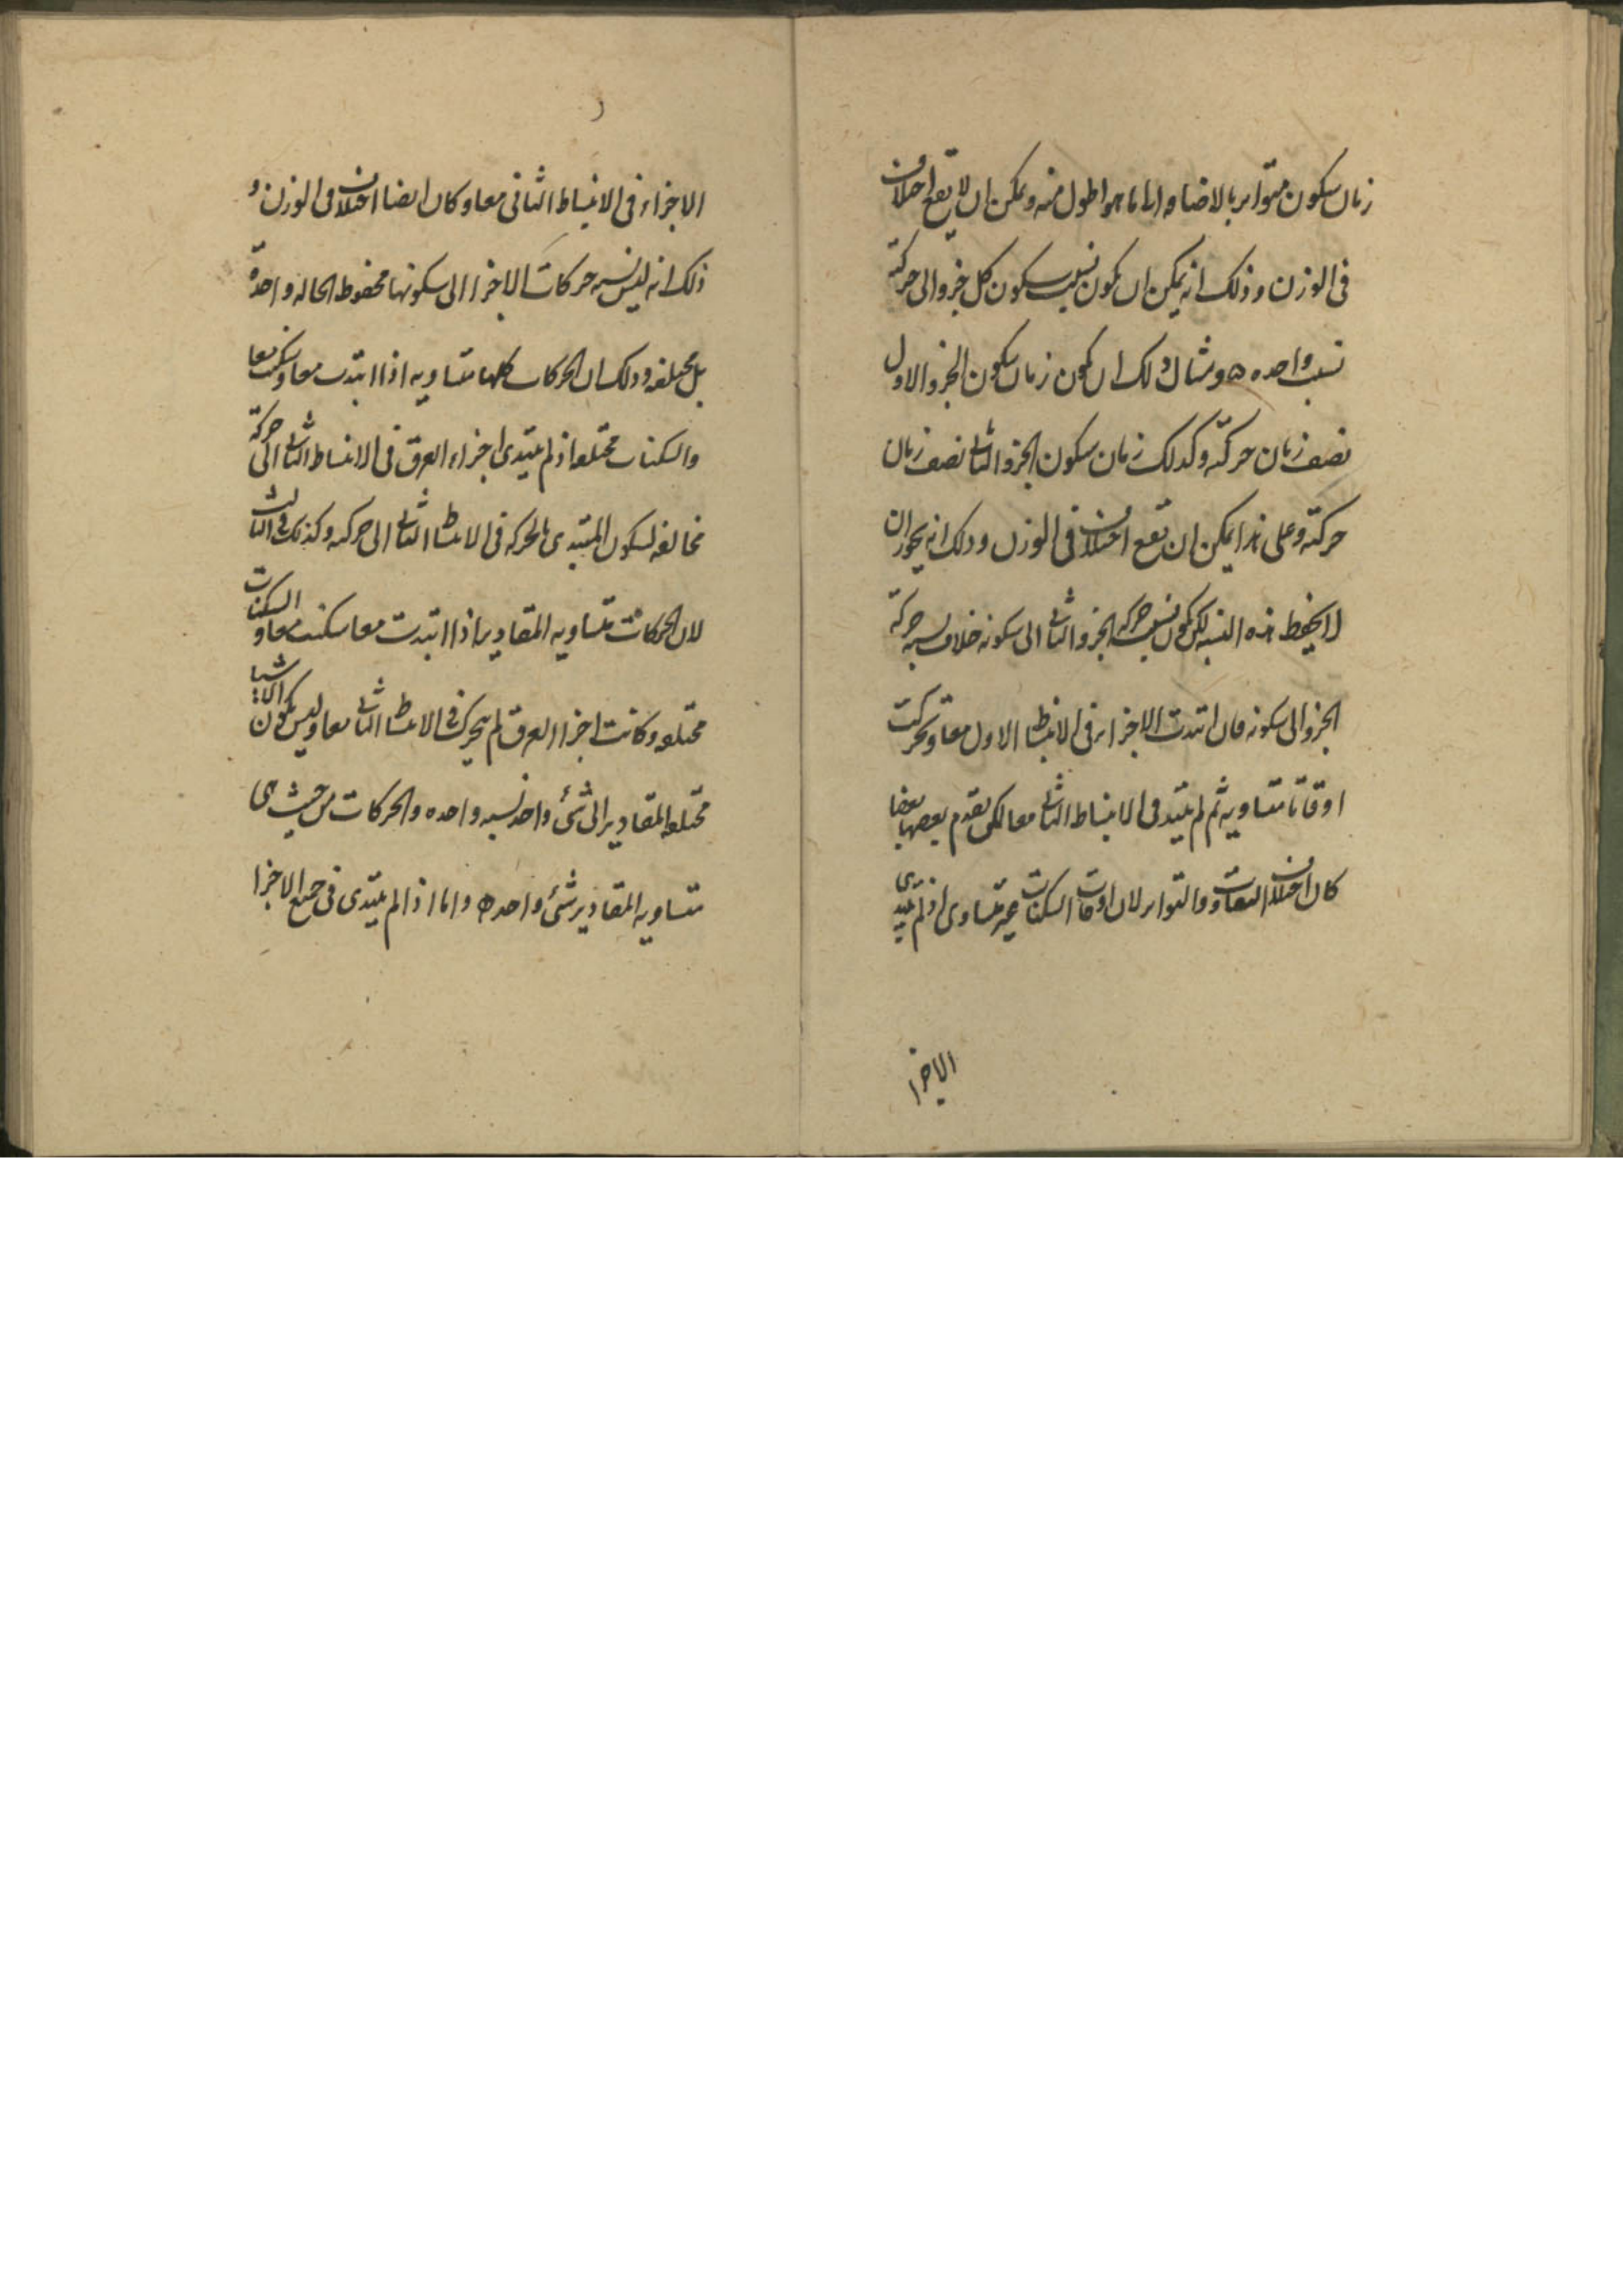 زمان سكون متواتر بالاضافه الى ما هو اطول منه ويمكن ان لا يقع اختلاف
فى الوزن وذلك انه يمكن ان يكون نسبت سكون كل جزو الى حركته
نسبت واحده ه ومثال ذلك ان يكون زمان سكون الجزو الاول
نصف زمان حركته وكذلك زمان سكون الجزو الثانى نصف زمان
حركته وعلى هذا يمكن ان يقع اختلاف فى الوزن وذلك انه يجوز ان
لا يحفظ هذه النسبه لكن يكون نسبت حركه الجزو الثانى الى سكونه خلاف نسبه حركة
الجزو الى سكونه فان ابتدت الاجزاء فى الانبساط الاول معا وتحركت
اوقاتا متساويه ثم لم يبتد فى الانبساط الثانى معا لكن تقدم بعضها بعضا
كان اختلاف التفاوت والتواتر لان اوقات السكنات غير متساوى اذ لم يبتدى
الاجزا
الاجزاء فى الانبساط الثانى معا وكان ايضا اختلاف فى الوزن و
ذلك انه ليس نسبه حركات الاجزا الى سكونها محفوظ الحاله واحدة
بل مختلفه وذلك ان الحركات كلها متساويه اذا ابتدت معا وسكنت معا
والسكنات مختلفه اذ لم يبتدى اجزاء العرق فى الانبساط الثانى الى حركة
مخالفه لسكون المبتدى بالحركه فى الانبساط الثانى الى حركته وكذلك فى الثالث
لان الحركات متساويه المقادير اذا ابتدت معا سكنت معا و السكنات
مختلفه وكانت اجزا العرق لم يتحرك فى الانبساط الثانى معا وليس يكون الاشيا
مختلفه المقادير الى شئ واحد نسبه واحده والحركات من حيث هى
متساويه المقادير شئ واحد ه واما اذا لم يبتدى فى جميع الاجزا